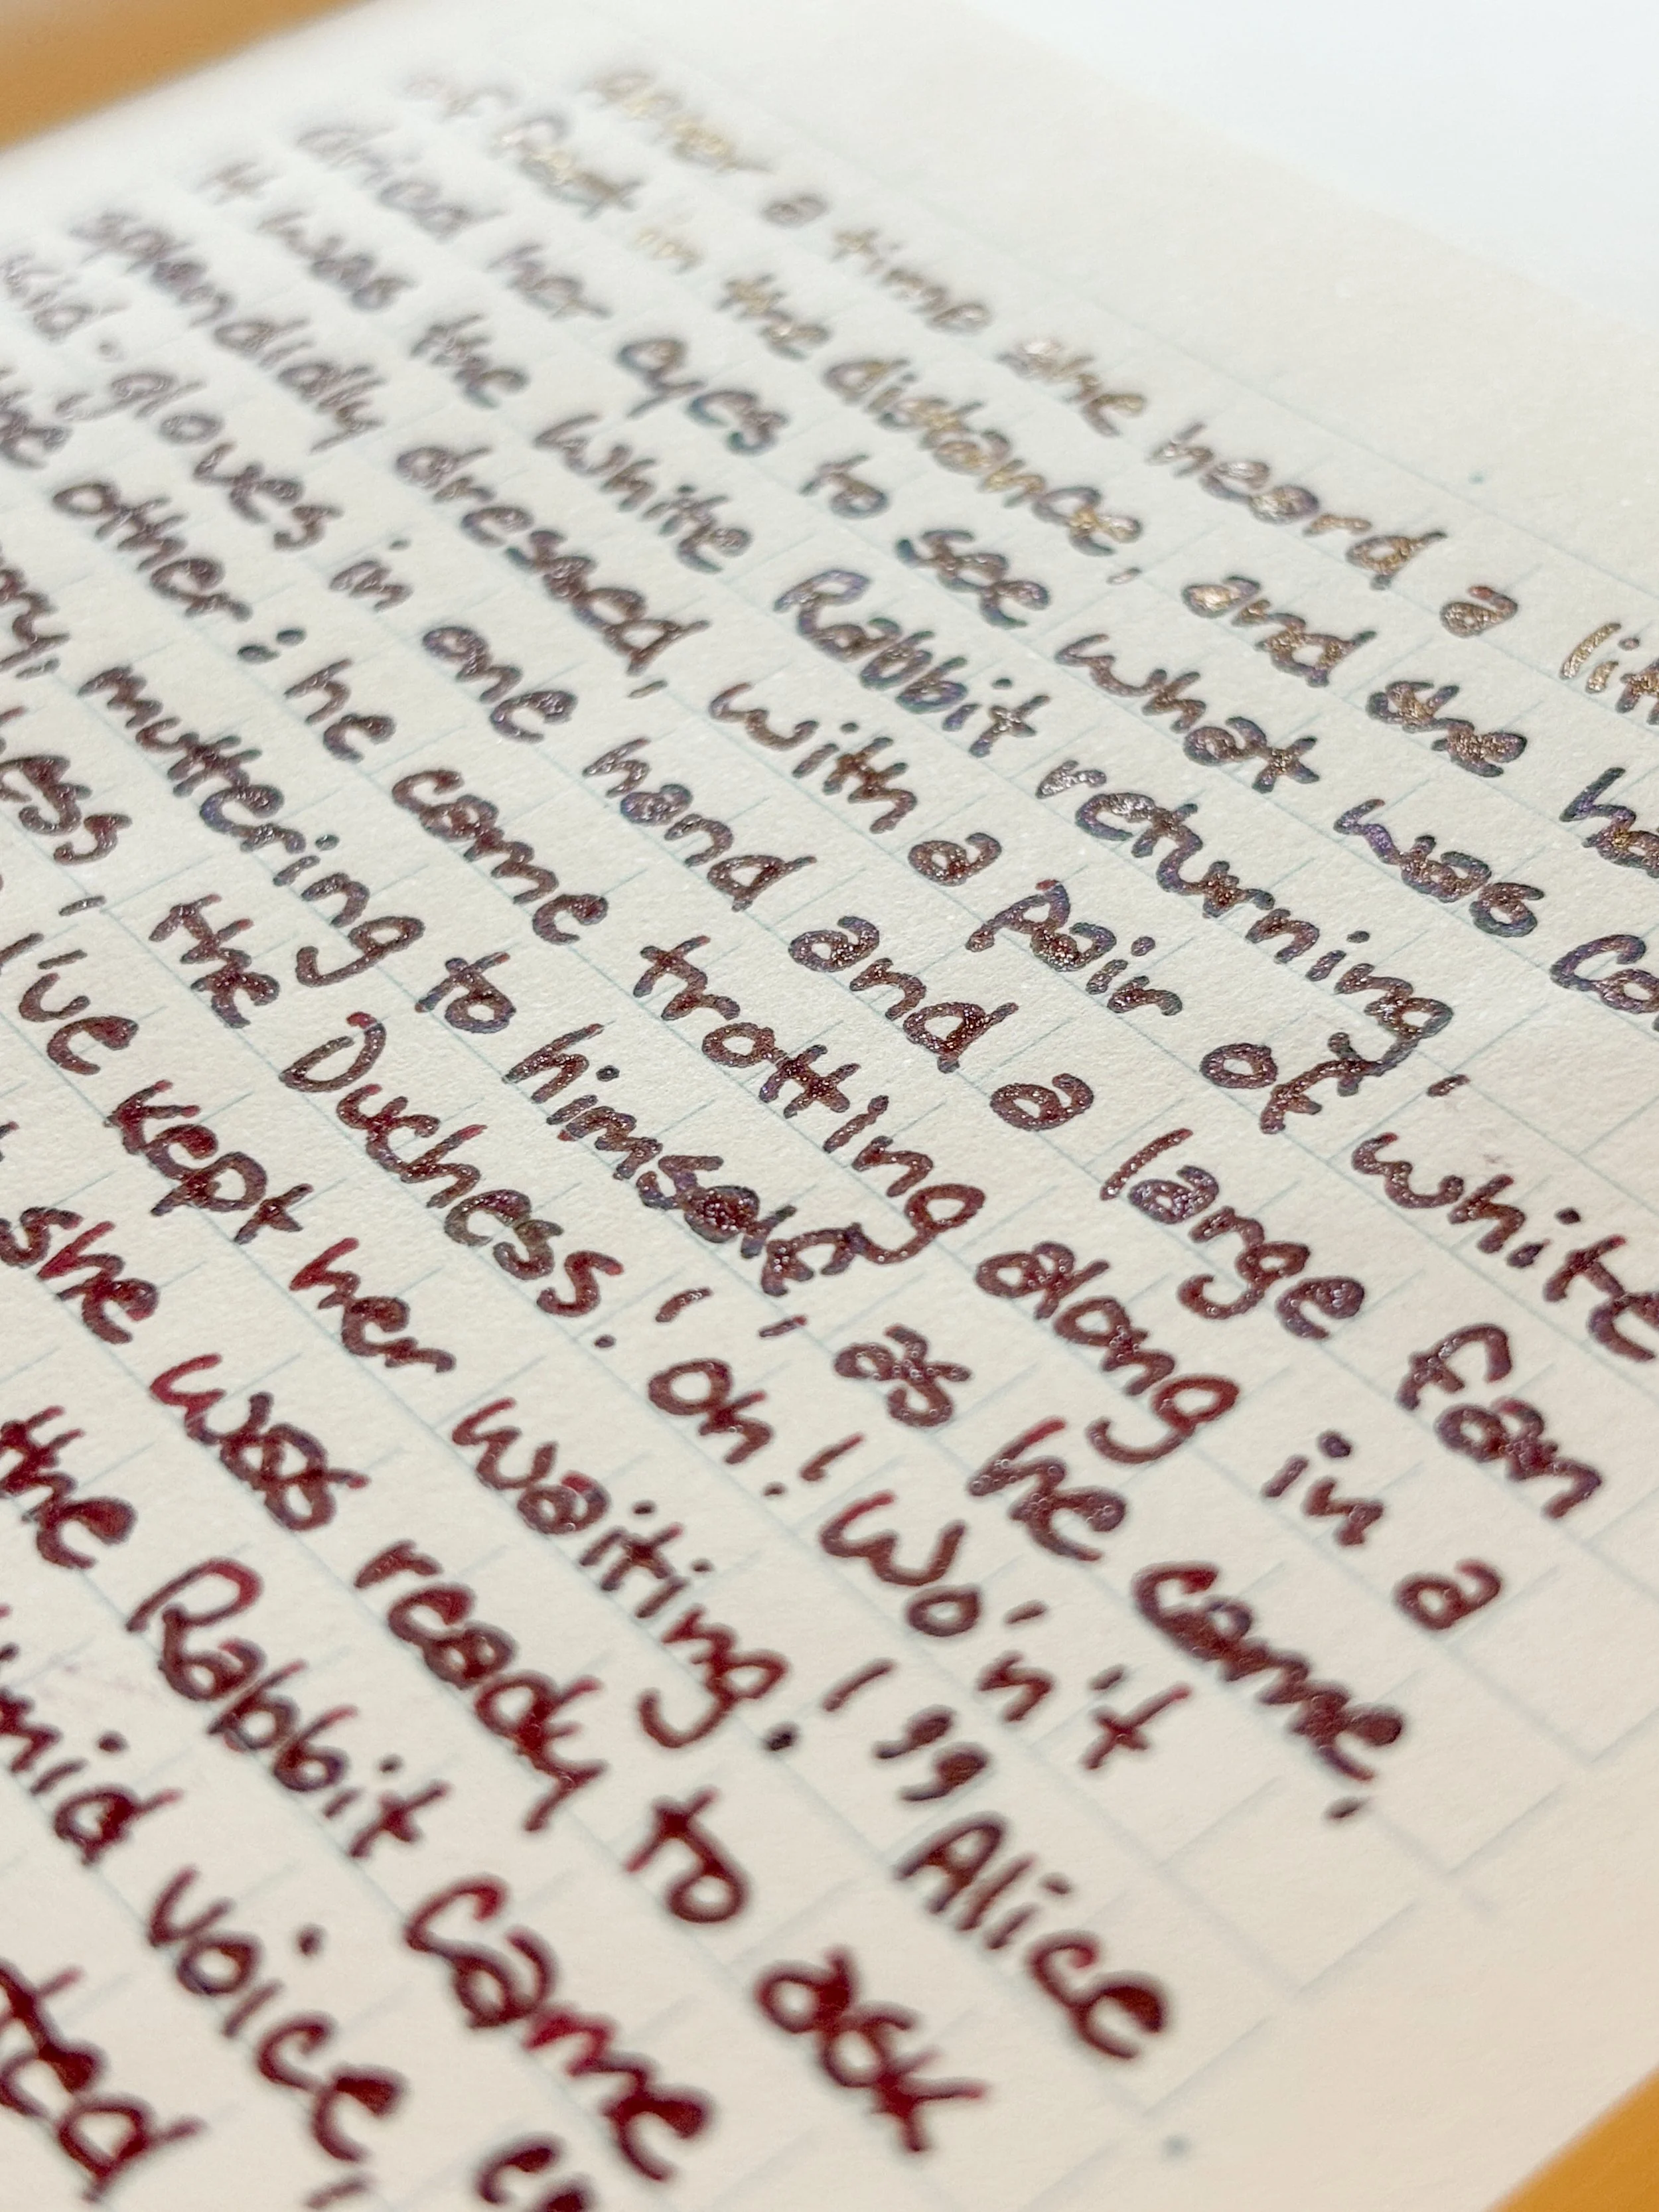 After a time she heard a litt
of feet in the distance, and she ha
dried her eyes to see what was co
It was the White Rabbit returning,
splendidly dressed, with a pair of white
kid-gloves in one hand and a large fan
the other: he came trotting along in a
rry, muttering to himself, as he came,
hess, the Duchess! oh! Wo'n't
I've kept her waiting!" Alice
she was ready to ask
the Rabbit came
imid voice,
ted